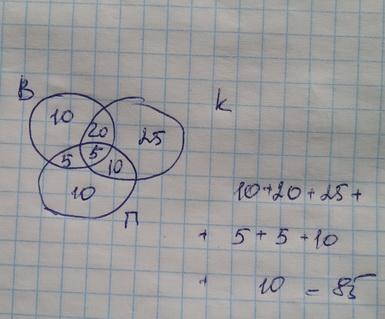 В
К
10
20
25
5
5
10
10
П
10+20+25+
+ 5+5+10
+ 10 = 85